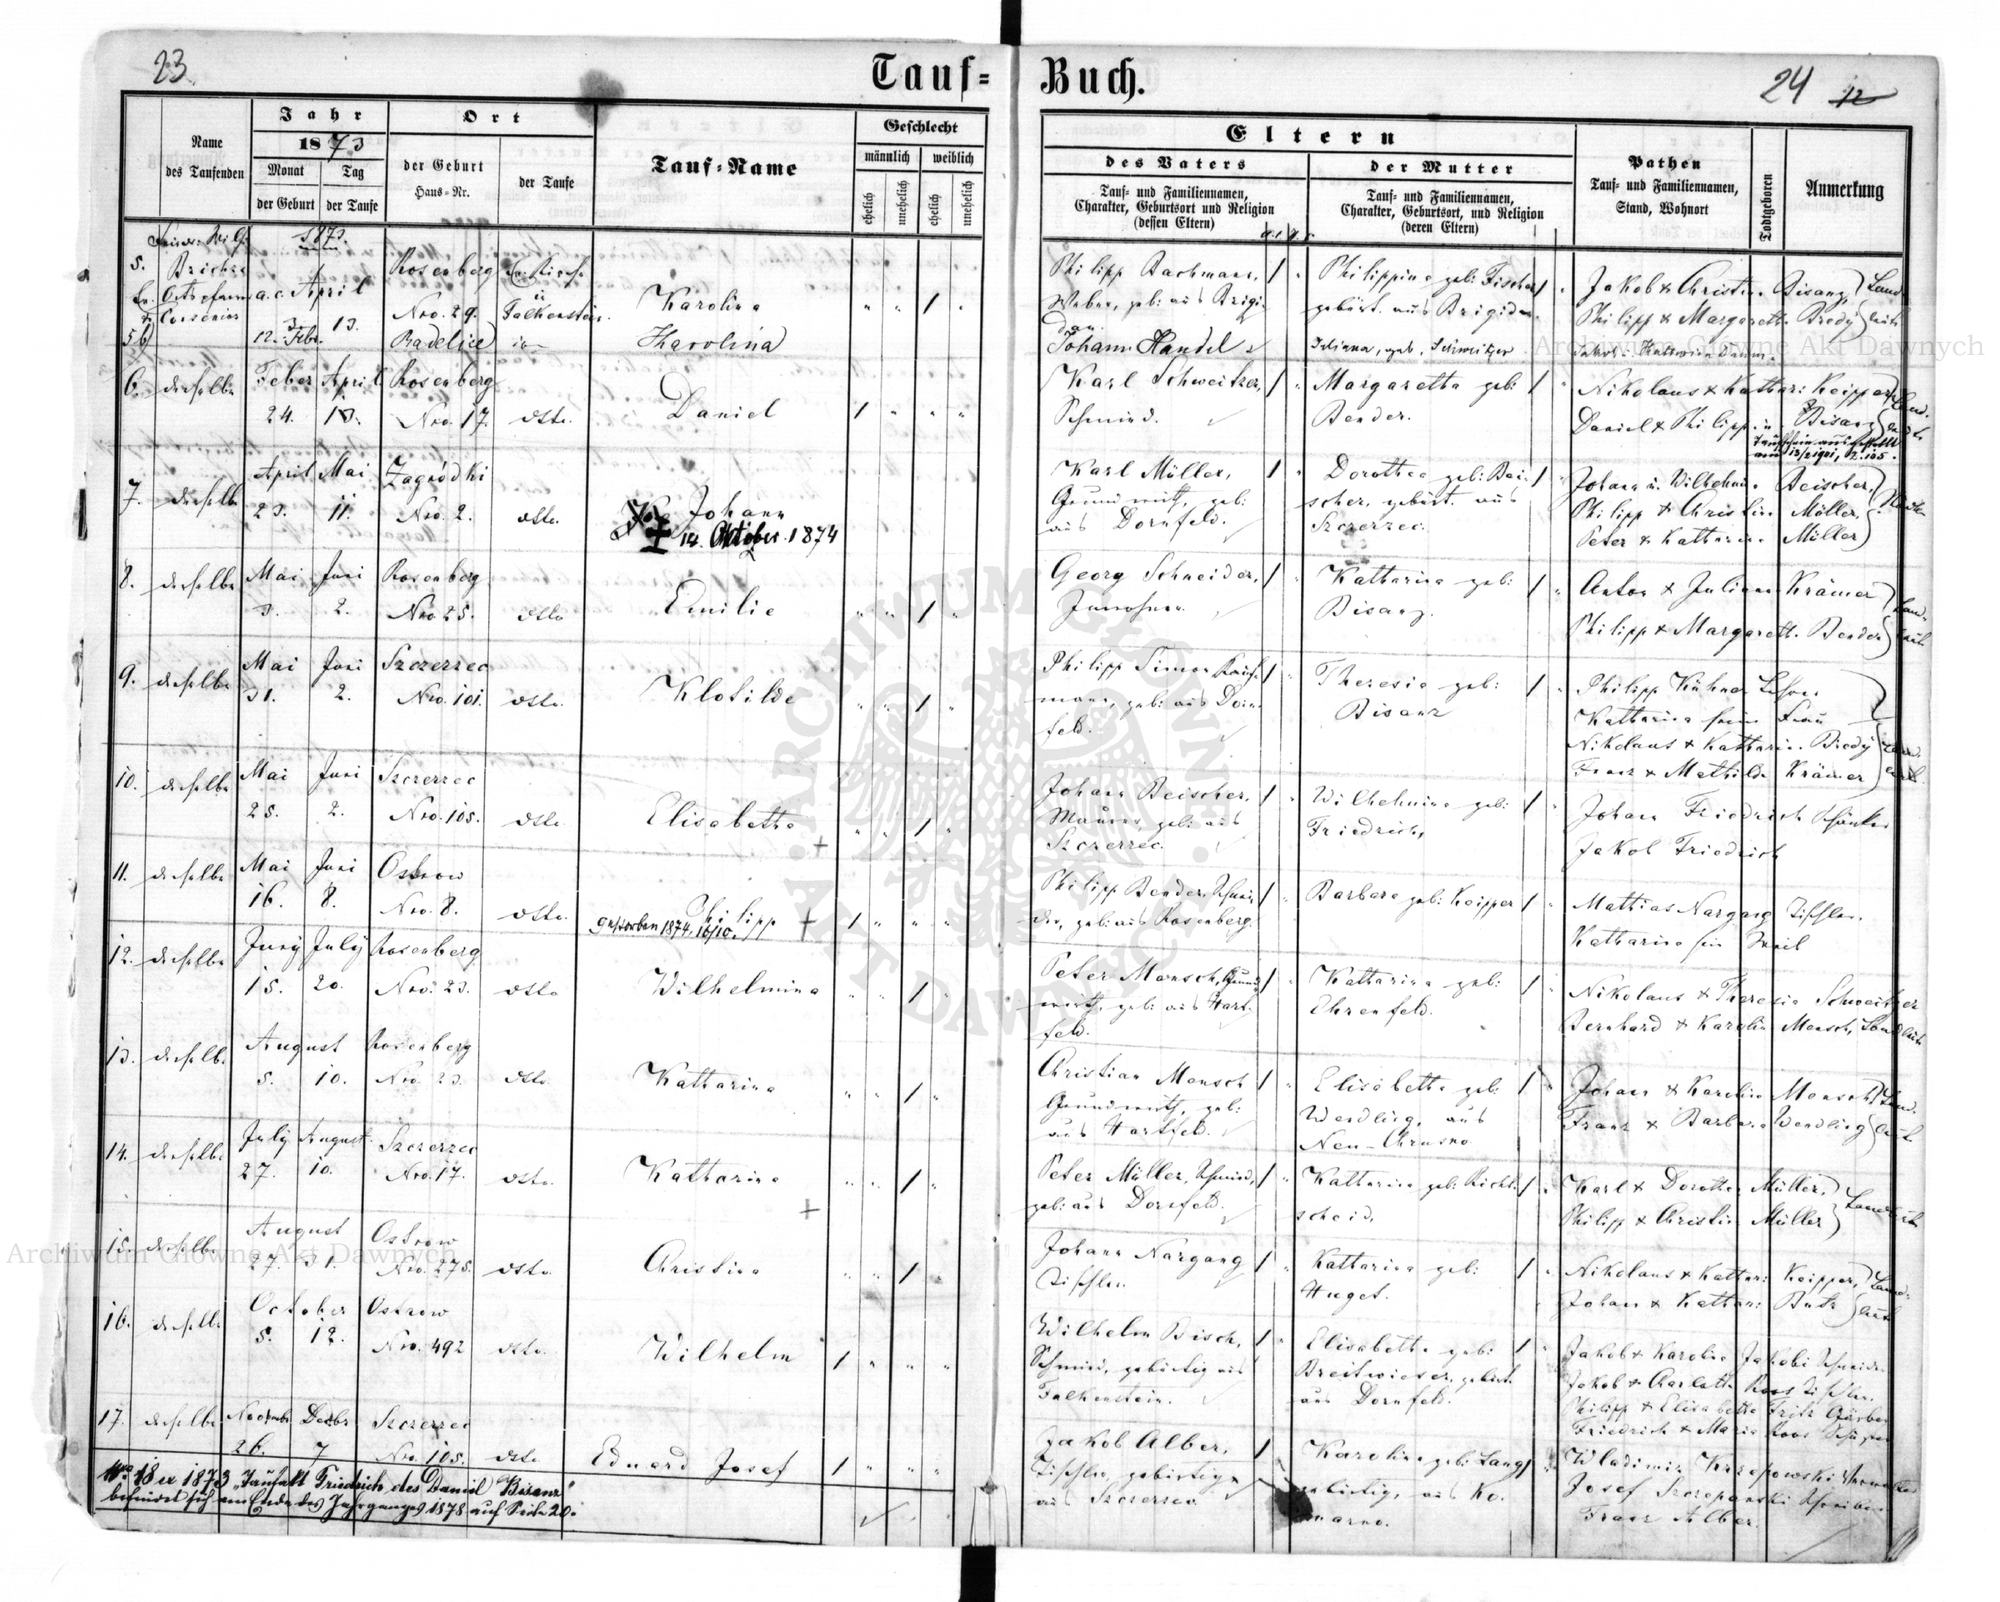 23
Tauf=
Buch.
24 12
Name
des Taufenden
Jahr
1873
Monat
Tag
der Geburt
der Taufe
Ort
der Geburt
Haus=Nr.
der Taufe
Tauf=Name
Geschlecht
männlich
weiblich
ehelich
unehelich
ehelich
unehelich
Eltern
des Vaters
der Mutter
Tauf= und Familiennamen,
Charakter, Geburtsort und Religion
(dessen Eltern)
Tauf= und Familiennamen,
Charakter, Geburtsort, und Religion
(deren Eltern)
Pathen
Tauf= und Familiennamen,
Stand, Wohnort
Todtgeboren
Anmerkung
1873.
5. April Rosenberg
Nro. 29. Falkenstein. Karolina
13.
Philipp Bachmann,
Philippina geb: Fischer
gebürt. aus Brigidau.
Jakob & Christin Bisanz,
Philipp & Margareth. Bredy
5b) 12. Febr. Karolina
Johann Handel
Juliana, geb. Schweitzer
6. derselbe Feber April Rosenberg
24. 13. Nro. 17. Daniel 1
Karl Schweitzer,
Schmied.
Margaretha geb:
Bender.
Nikolaus & Kathari: Keipper
Daniel & Philippin. Bisanz
7. derselbe April Mai Zagródki
23. 11. Nro. 2. Johann
14. Oktober 1874
Karl Müller,
Grundwirth, geb:
aus Dornfeld.
Dorothea geb: Bei-
scher, gebürt. aus
Szczerzec.
Johann u. Wilhelmin. Beischer,
Philipp & Christin Müller,
Peter & Katharina Müller
8. derselbe Mai Juni Rosenberg
3. 2. Nro. 25. Emilie 1
Georg Schneider,
Katharina geb:
Bisanz.
Anton & Juliana Krämer
Philipp & Margareth. Bender
9. derselbe Mai Juni Szczerzec
31. 2. Nro. 101. Klotilde 1
Philipp Simon Kauf-
mann, geb: aus Dorn-
feld.
Theresia geb:
Bisanz
Philipp Kühner Lehrer
Katharina seine Frau
Nikolaus & Katharin. Bredy
Franz & Mathilde Krämer
10. derselbe Mai Juni Szczerzec
25. 2. Nro. 105. Elisabetha 1
Johann Beischer,
Maurer, geb: aus
Szczerzec.
Wilhelmina geb:
Friedrich,
Johann Friedrich
Jakob Friedrich
11. derselbe Mai Juni Ostrow
16. 8. Nro. 8. Philipp + 1
gestorben 1874, 16/10.
Philipp Bender,
geb: aus Rosenberg.
Barbara geb: Keipper
Mathias Nargang Tischler.
Katharina sein Weib
12. derselbe Juny July Rosenberg
15. 20. Nro. 23. Wilhelmina 1
Peter Mensch, Grund-
wirth, geb: aus Hart-
feld.
Katharina geb:
Ehrenfeld.
Nikolaus & Theresia Schweitzer
Bernhard & Karolin Mensch, Landleute
13. derselbe August Rosenberg
5. 10. Nro. 23. Katharina 1
Christian Mensch
Grundwirth, geb:
aus Hartfeld.
Elisabetha geb:
Wendling, aus
Neu-Chrusno
Johann & Karolina Mensch
Franz & Barbara Wendling
14. derselbe July August Szczerzec
27. 10. Nro. 17. Katharina 1
Peter Müller, Schmied,
geb: aus Dornfeld.
Katharina geb:
Karl & Dorothea Müller,
Philipp & Christin Müller
Landleute
15. derselbe August Ostrow
27. 31. Nro. 275. Christina 1
Johann Nargang
Tischler.
Katharina geb:
Huget.
Nikolaus & Kathari: Keipper,
Johann & Kathari: Butz
16. derselbe October Ostrow
5. 12. Nro. 492 Wilhelm 1
Wilhelm Bisch,
Schmied, gebürtig aus
Falkenstein.
Elisabetha geb:
Breitwieser, gebürt.
aus Dornfeld.
Jakob & Karolina Jakobi
Jakob & Charlotta Roos Tischler.
Philipp & Elisabetha Fritz Gärber
Friedrich & Maria Roos
17. derselbe Novembr Decbr Szczerzec
26. 7 Nro. 105. Eduard Josef 1
Jakob Alber,
Tischler, gebürtig
aus Szczerzec.
Karolina geb: Lang
gebürtig, aus Ko-
marno.
Wladimir Krzepowski
Josef Szczepanski
Franz Alber
Nro 18 ex 1873 Taufakt Friedrich des Daniel Bisanz
befindet sich am Ende des Jahrganges 1878 auf Seite 20.
ARCHIWUM GŁÓWNE AKT DAWNYCH
Archiwum Główne Akt Dawnych
Archiwum Główne Akt Dawnych